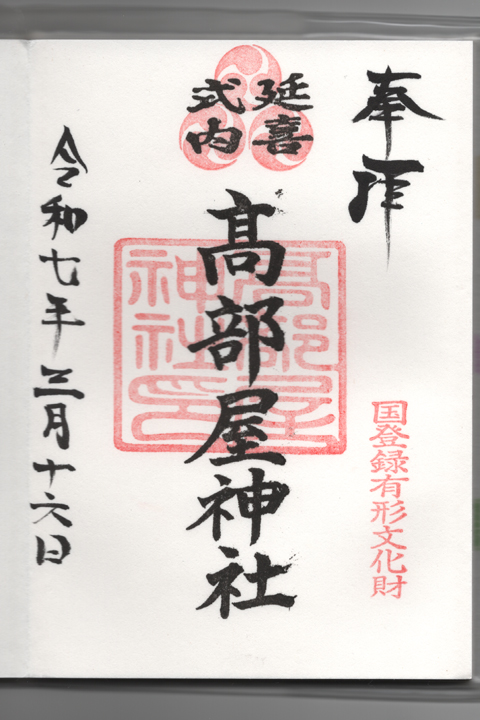 奉拝
国登録有形文化財
延喜
式内
高部屋神社
高部屋
神社印
令和七年三月十六日